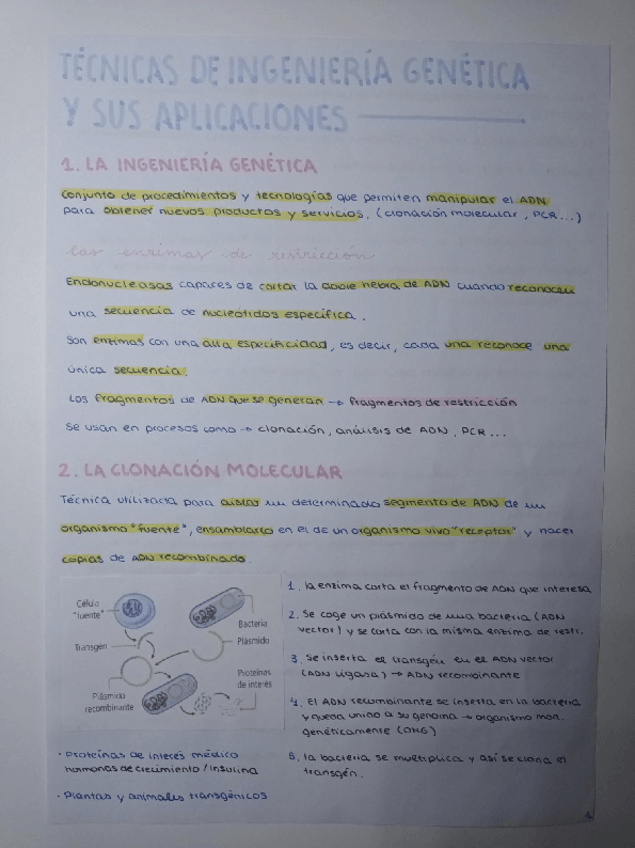 TÉCNICAS DE INGENIERÍA GENÉTICA
Y SUS APLICACIONES
1. LA INGENIERÍA GENÉTICA
Conjunto de procedimientos y tecnologías que permiten manipular el ADN
para obtener nuevos productos y servicios. (clonación molecular, PCR...)
las enzimas de restricción
Endonucleasas capaces de cortar la doble hebra de ADN cuando reconocen
una secuencia de nucleótidos específica.
Son enzimas con una alta especificidad, es decir, cada una reconoce una
única secuencia.
Los fragmentos de ADN que se generan → fragmentos de restricción
Se usan en procesos como → clonación, análisis de ADN, PCR...
2. LA CLONACIÓN MOLECULAR
Técnica utilizada para aislar un determinado segmento de ADN de un
organismo "fuente", ensamblarlo en el de un organismo vivo "receptor" y hacer
copias de ADN recombinado.
Célula
"fuente"
Transgén
Plásmido
recombinante
Bacteria
Plásmido
Proteínas
de interés
1. la enzima corta el fragmento de ADN que interesa
2. Se coge un plásmido de una bacteria (ADN
vector) y se corta con la misma enzima de restr.
3. Se inserta el transgén en el ADN vector
(ADN ligasa) → ADN recombinante
4. El ADN recombinante se inserta en la bacteria
y queda unido a su genoma → organismo mod.
genéticamente (OMG)
5. la bacteria se multiplica y así se clona el
transgén.
· Proteínas de interés médico
hormonas de crecimiento / insulina
· Plantas y animales transgénicos